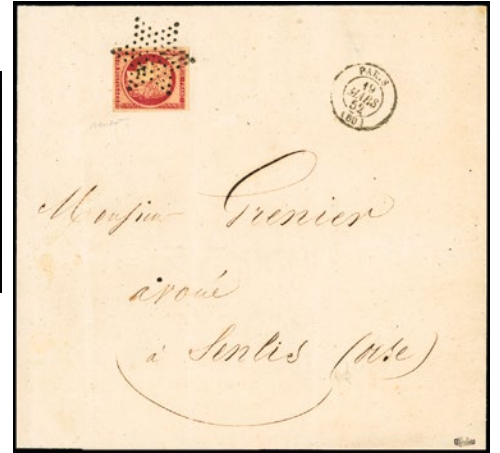 PARIS
19
MARS
52
(60)
Monsieur Grenier
avoué
à Senlis (oise)